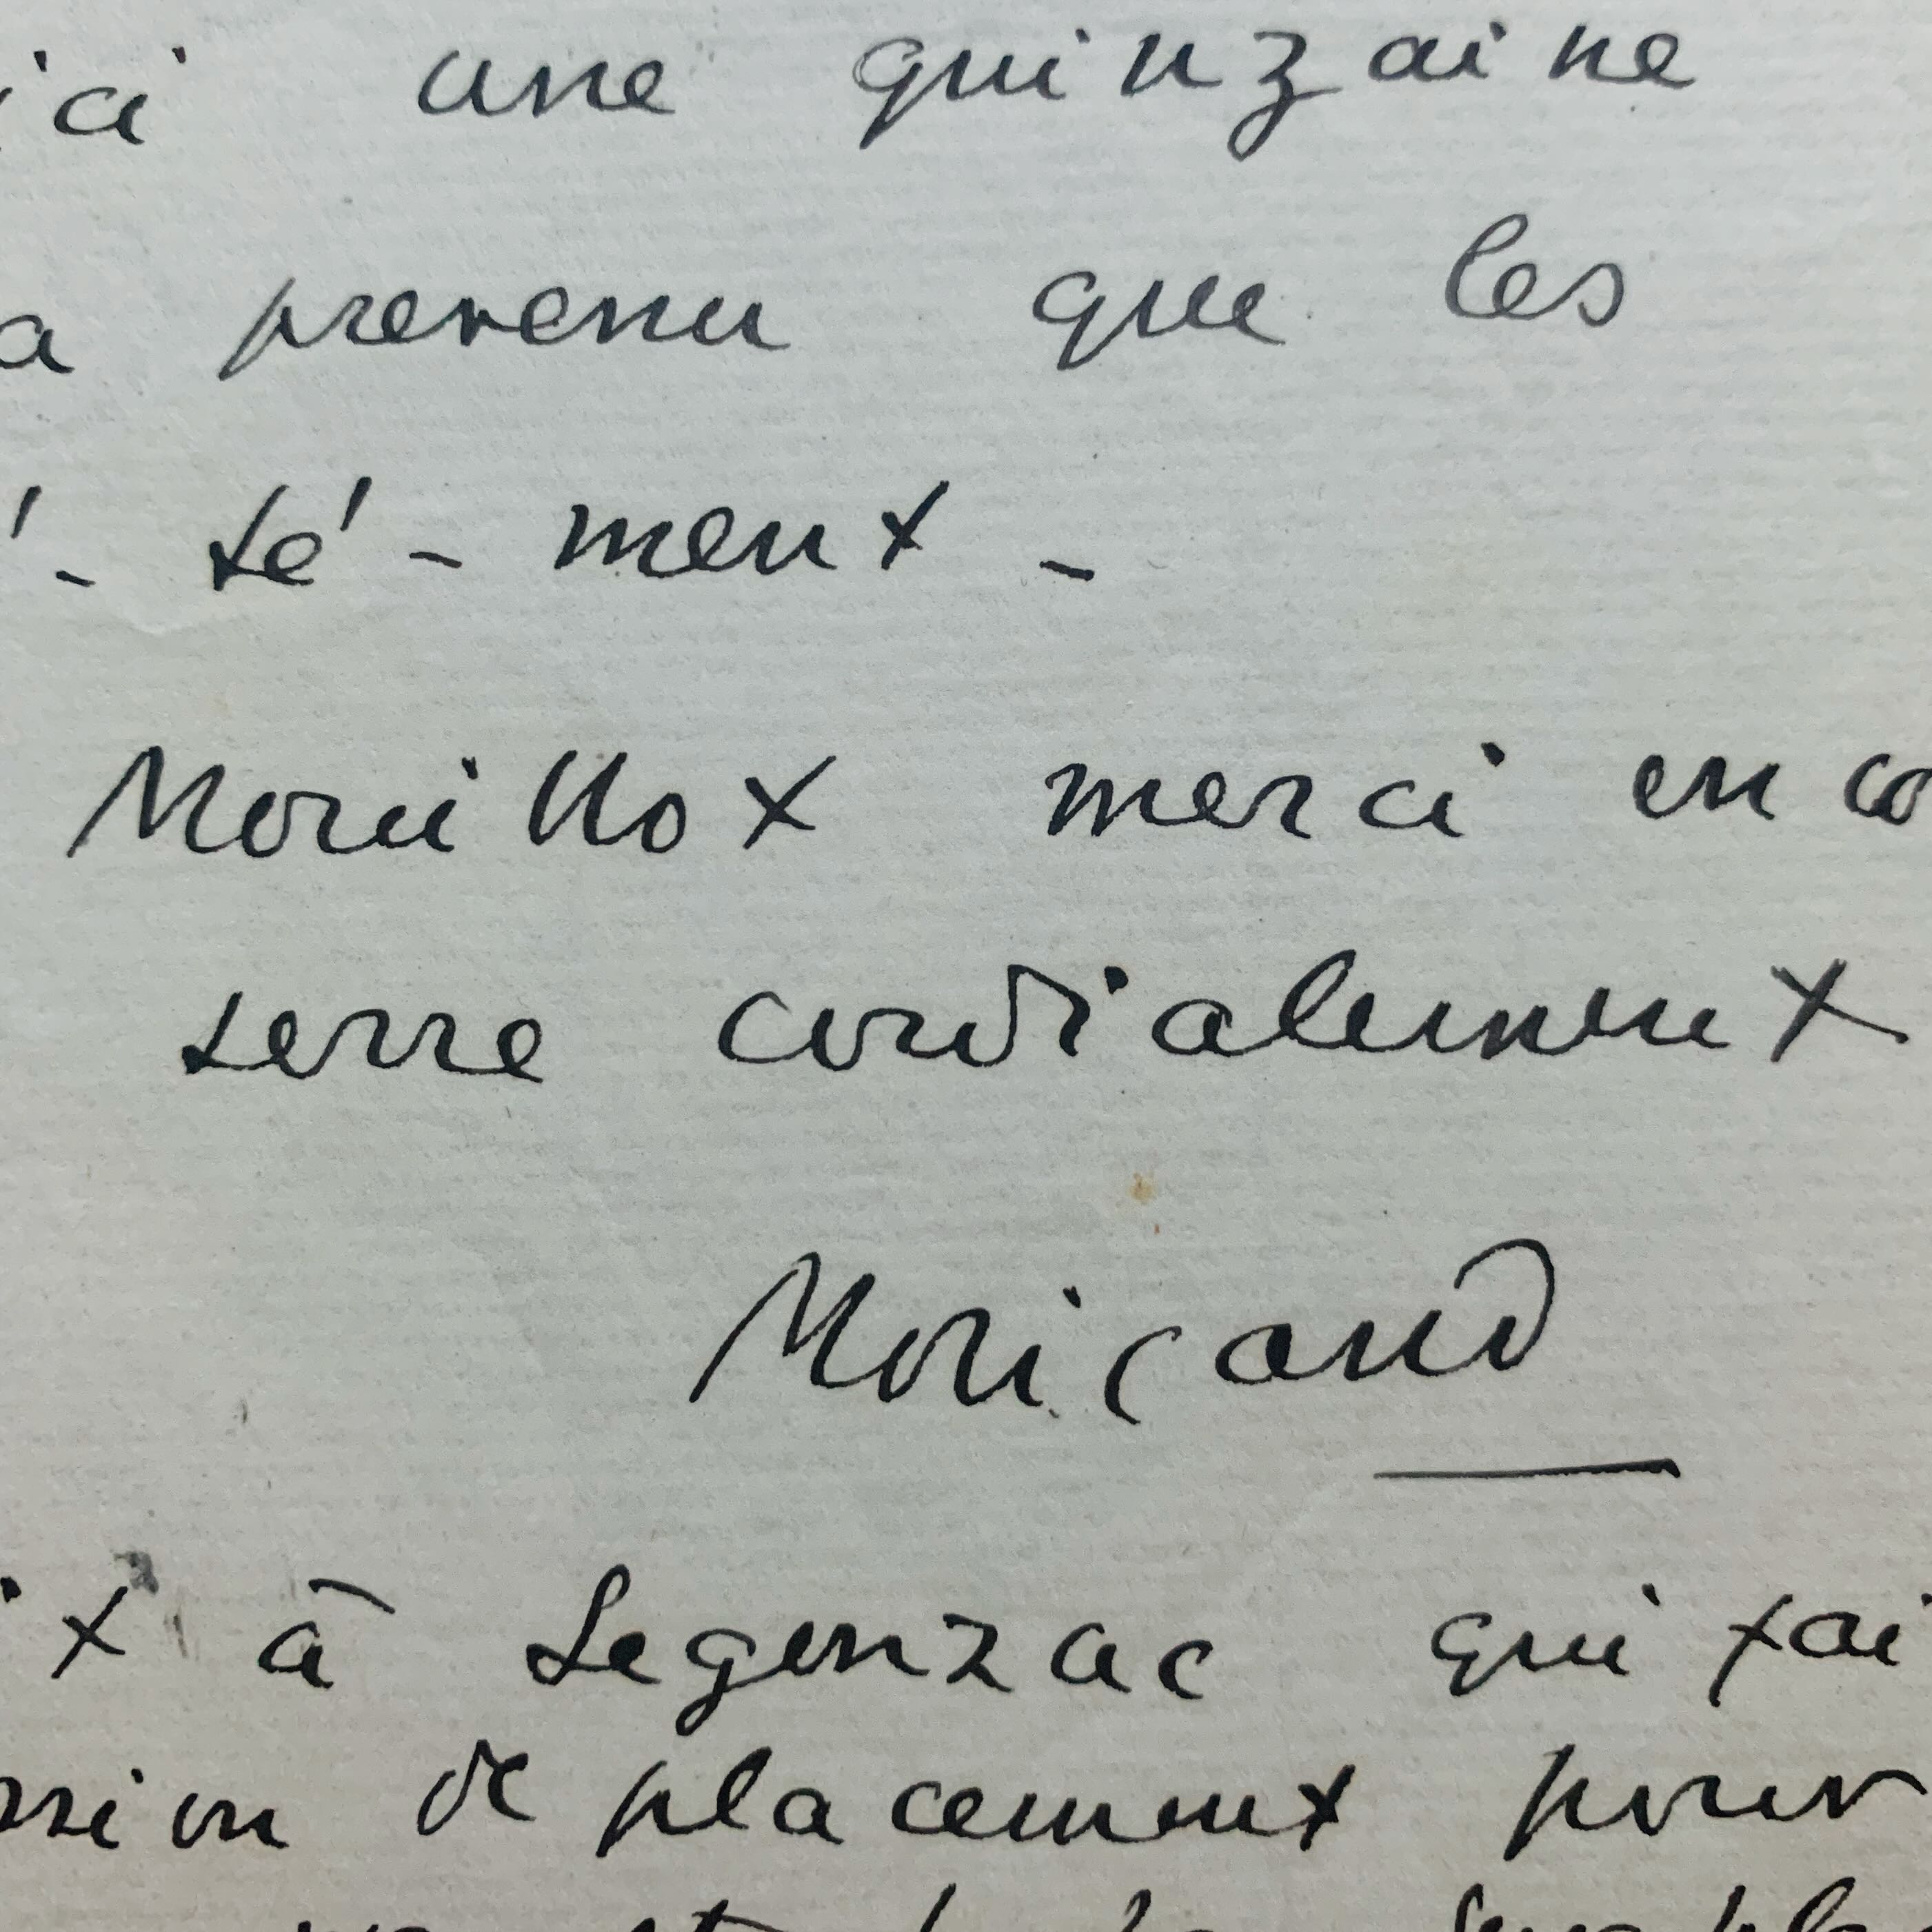 ici une quinzaine
a prevenu que les
é - té - ment -
Mouillot merci enco
serre cordialement
Moricand
it à Segonzac qui fai
ssion de placement pour